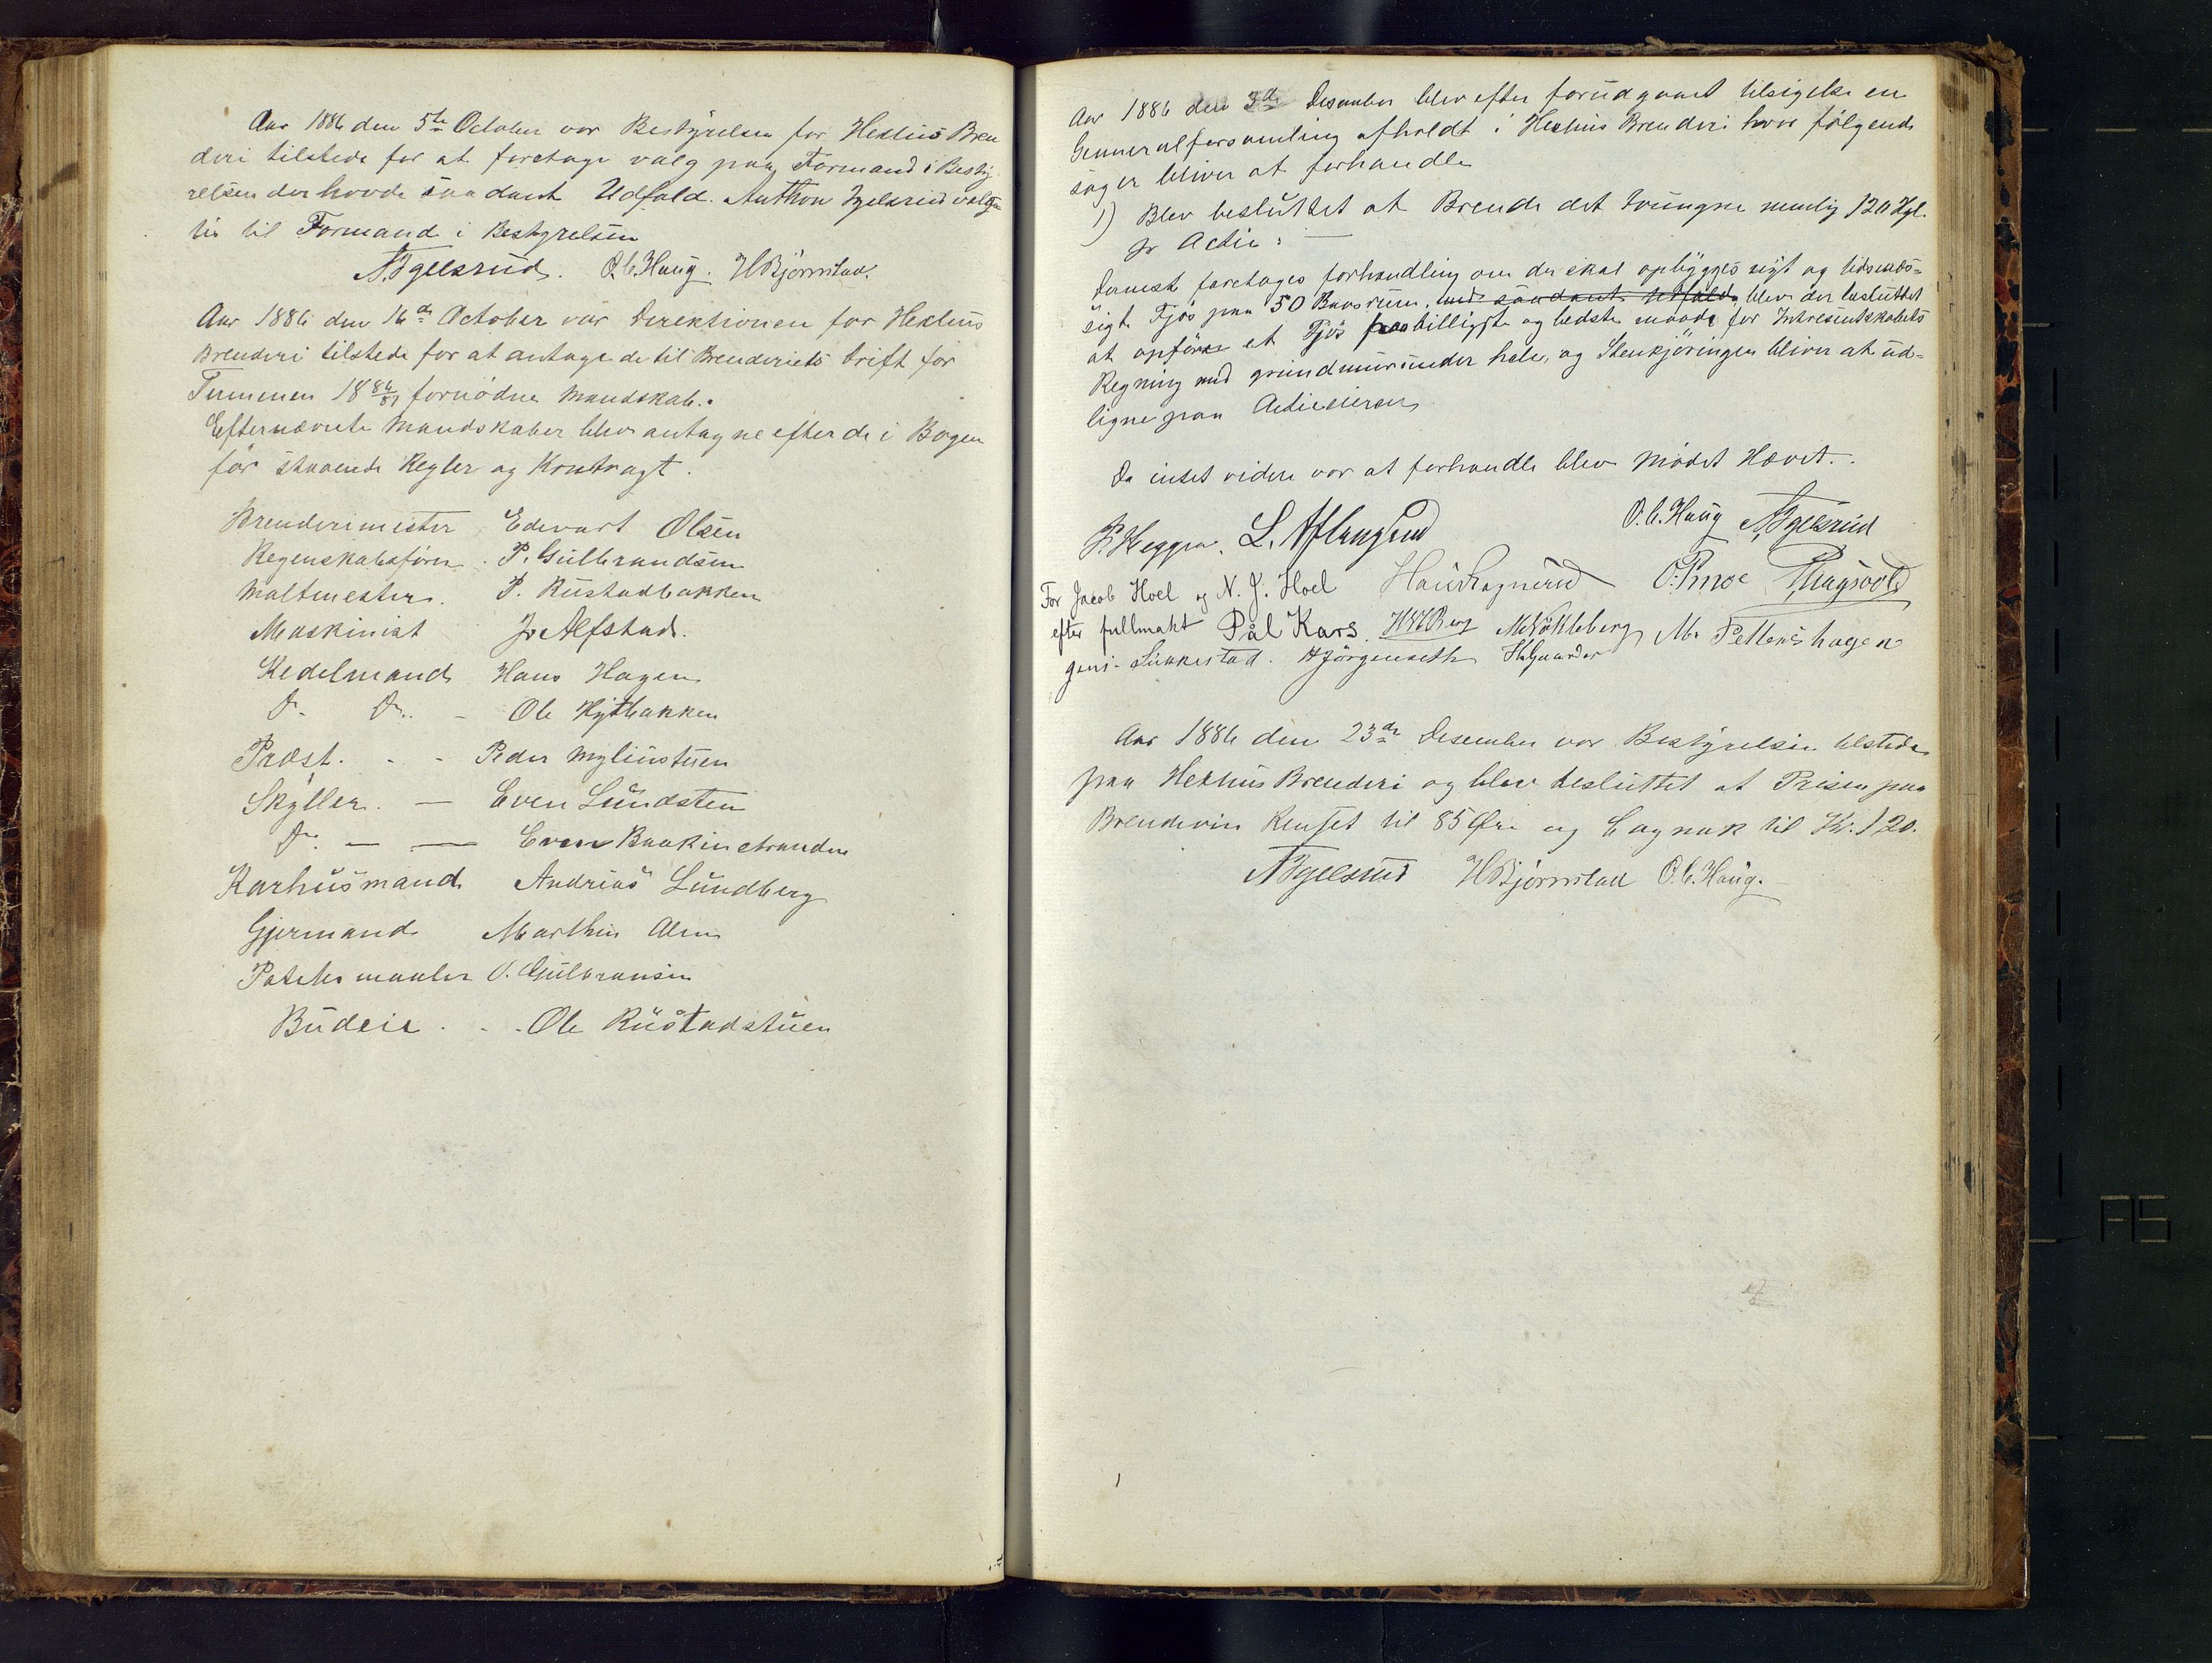 Aar 1886 den 5te October var Bestyrelsen for Hexhus Bren
deri tilstede for at foretage valg paa Formand i Besty
relsen der havde saadant Udfald. Anthon Igelsrud valg
tes til Formand i Bestyrelsen
A Igelsrud. O.C. Haug. H Bjørnstad.
Aar 1886 den 16de October var Direktionen for Hexhus
Brenderi tilstede for at antage de til Brenderiets drift for
Terminen 1886/87 fornødne Mandskab.
Efternævnte Mandskaber blev antagne efter de i Bogen
før staaende Regler og Kontragt.
Brenderimester Edevart Olsen
Regenskabsfører. P. Gulbrandsen
Maltmester. P. Rustadbakken
Maskinist Jo Alfstad.
Kedelmand Hans Hagen
Do. Do. - Ole Hytbakken
Præst. - - Peder Myliustuen
Skyller. — Even Lundsten
Do. — — Even Baakinstranden
Karhusmand Andrias Lundberg
Gjermand Marthin Alm
Potetesmauler O. Gulbransen
Budeie. - - Ole Rustadstuen
Aar 1886 den 3de Desember blev efter forudgaaet tilsigelse en
Genneralforsamling afholdt i Hexhus Brenderi hvor følgende
sager bliver at forhandle
1) Blev besluttet at Brende det tvungne nemlig 120 Hgl.
pr Actie: —
Dernest foretages forhandling om der skal opbygges nyt og tidsmæs=
sigt Fjøs paa 50 Baasrum, med saadant Udfald, blev der besluttet
at opføre et Fjøs paa billigste og bedste maade for Intresentskabets
Regning med grundmur under hele, og Stenkjøringen bliver at ud=
ligne paa Actieeieren
Da intet videre var at forhandle blev Mødet Hævet.
O.C. Haug A Igelsrud
P. Heggen. L. Aflangrud
For Jacob Hoel og N. J. Hoel Hans Rognerud O. Smoe
efter fullmakt Pål Kars. H H Berg M Nøkleberg M. Pettershagen
Sukkestad. H Jørgenseth H. Gaarder
Aar 1886 den 23de Desember var Bestyrelsen tilstede
paa Hexhus Brenderi og blev besluttet at Prisen paa
Brendevin Renset til 85 Øre og Cagnak til Kr. 1.20.
A Igelsrud H Bjørnstad O.C. Haug.